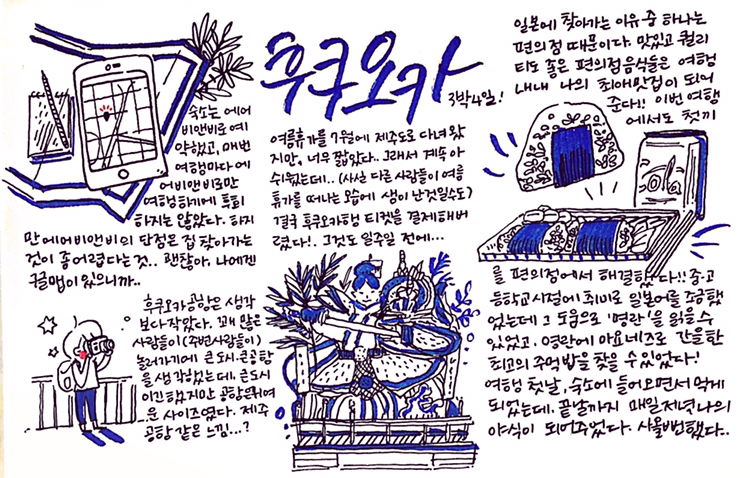 후쿠오카
3박4일!
여름휴가를 7월에 제주도로 다녀왔
지만, 너무 짧았다.. 그래서 계속 아
쉬웠는데.. (사실 다른 사람들이 여름
휴가를 떠나는 모습에 샘이 난것일수도)
결국 후쿠오카행 티켓을 결제해버
렸다!. 그것도 일주일 전에...
숙소는 에어
비앤비로 예
약했고, 매번
여행마다 에
어비앤비로만
여행하기에 후회
하지는 않았다. 하지
만 에어비앤비의 단점은 집 찾아가는
것이 좀 어렵다는것.. 괜찮아. 나에겐
구글맵이 있으니까..
후쿠오카공항은 생각
보다 작았다. 꽤 많은
사람들이 (주변사람들이)
놀러가기에 큰 도시. 큰공항
을 생각했는데. 큰도시
이긴 하지만 공항은 귀여
운 사이즈였다. 제주
공항 같은 느낌...?
일본에 찾아가는 이유 중 하나는
편의점 때문이다. 맛있고 퀄리
티도 좋은 편의점음식들은 여행
내내 나의 최애맛집이 되어
준다!! 이번 여행
에서도 첫끼
를 편의점에서 해결했다!! 중·고
등학교시절에 취미로 일본어를 조금했
었는데 그 도움으로 '명란'을 읽을 수
있었고. 명란에 마요네즈로 간을한
최고의 주먹밥을 찾을 수 있었다!
여행 첫날, 숙소에 들어오면서 먹게
되었는데. 끝날까지 매일저녁 나의
야식이 되어주었다. 사울뻔했다..